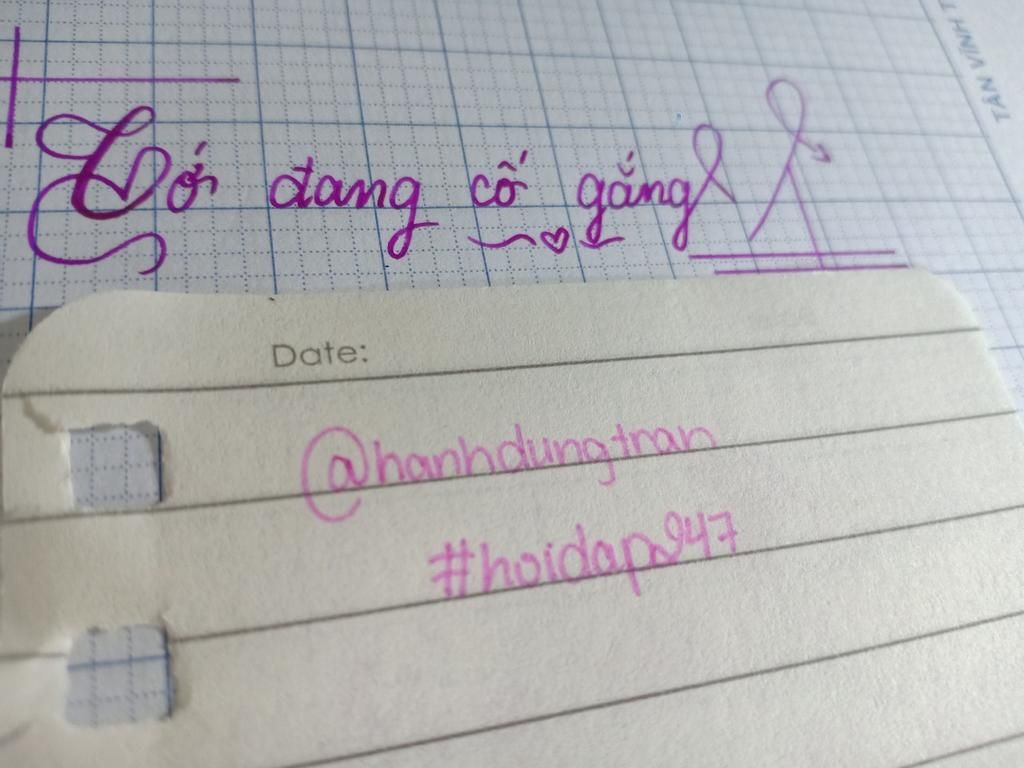 Tớ đang cố gắng
TÂN VĨNH T
Date:
@hanhdungtran
#hoidap247